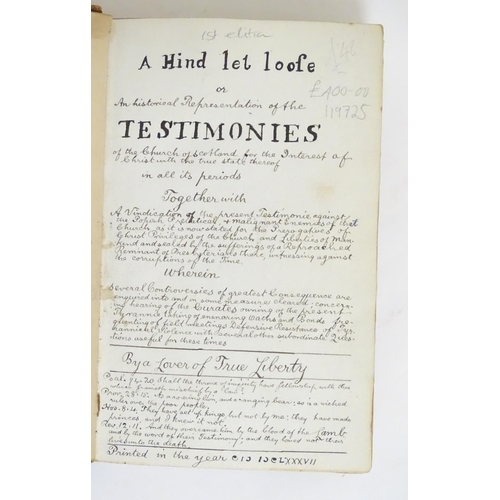 1st edition
A Hind let loose
or
£400-00
119725
An historical Representation of the
TESTIMONIES
of the Church of Scotland for the Interest of
Christ with the true state thereof
in all its periods
Together with
A Vindication of the present Testimonie against
the Popish Prelatical & malignant Enemies of that
Church, as it is now stated for the Prerogatives of
Christ Priviledges of the Church, and Liberties of Man
kind and sealed by the sufferings of a Reproached
Remnant of Presbyterians there, witnessing against
the corruptions of the Time
Wherein
Several Controversies of greatest Consequence are
enquired into and in some measure cleared; concern-
ing hearing of the Curates owning of the present
Tyrannie taking of ensnaring Oaths and Bonds fre-
quenting of field meetings Defensive Resistance of Tyr-
rannical Violence with several other subordinate Ques-
tions useful for these times
By a Lover of True Liberty
Psal. 94. 20. Shall the throne of iniquity have fellowship with thee
which frameth mischief by a law?
Prov. 28. 15. As a roaring lion, and a ranging bear; so is a wicked
ruler over the poor people.
Hos. 8:4. They have set up kings, but not by me; they have made
princes and I knew it not.
Rev. 12. 11. And they overcame him by the blood of the Lamb
and by the word of their Testimony; and they loved not their
lives unto the death
Printed in the year CIƆ IƆCLXXXVII